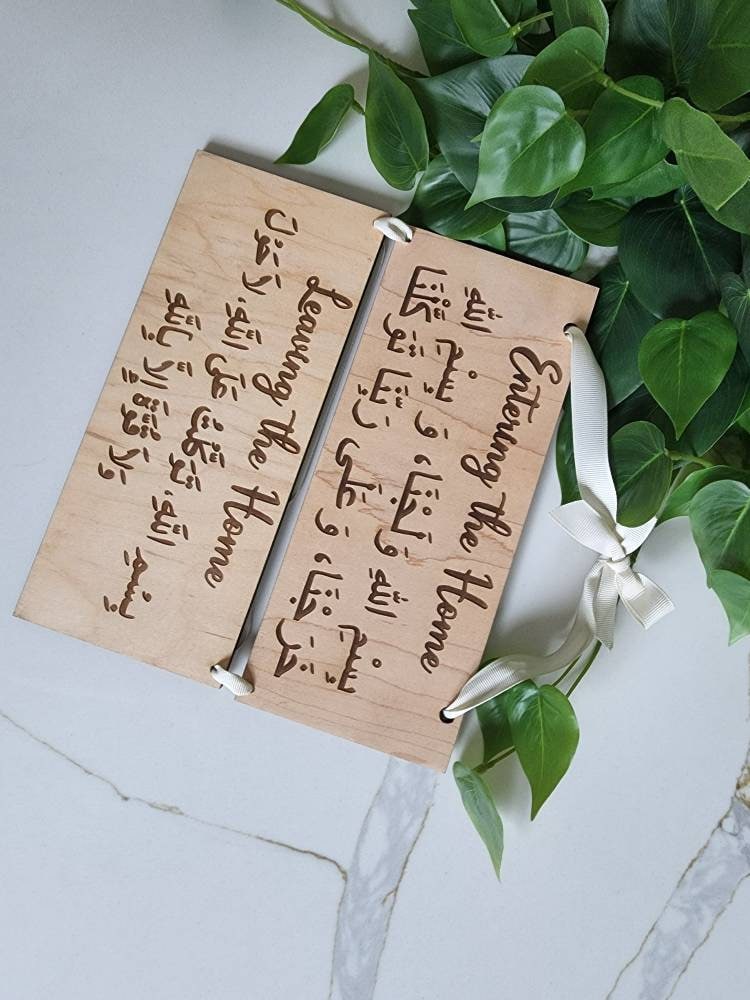 Entering the Home
بِسْمِ اللهِ وَلَجْنَا، وَ بِسْمِ اللهِ
خَرَجْنَا، وَ عَلَى رَبِّنَا تَوَكَّلْنَا
Leaving the Home
بِسْمِ اللهِ، تَوَكَّلْتُ عَلَى اللهِ، لَا حَوْلَ
وَلَا قُوَّةَ إِلَّا بِاللهِ